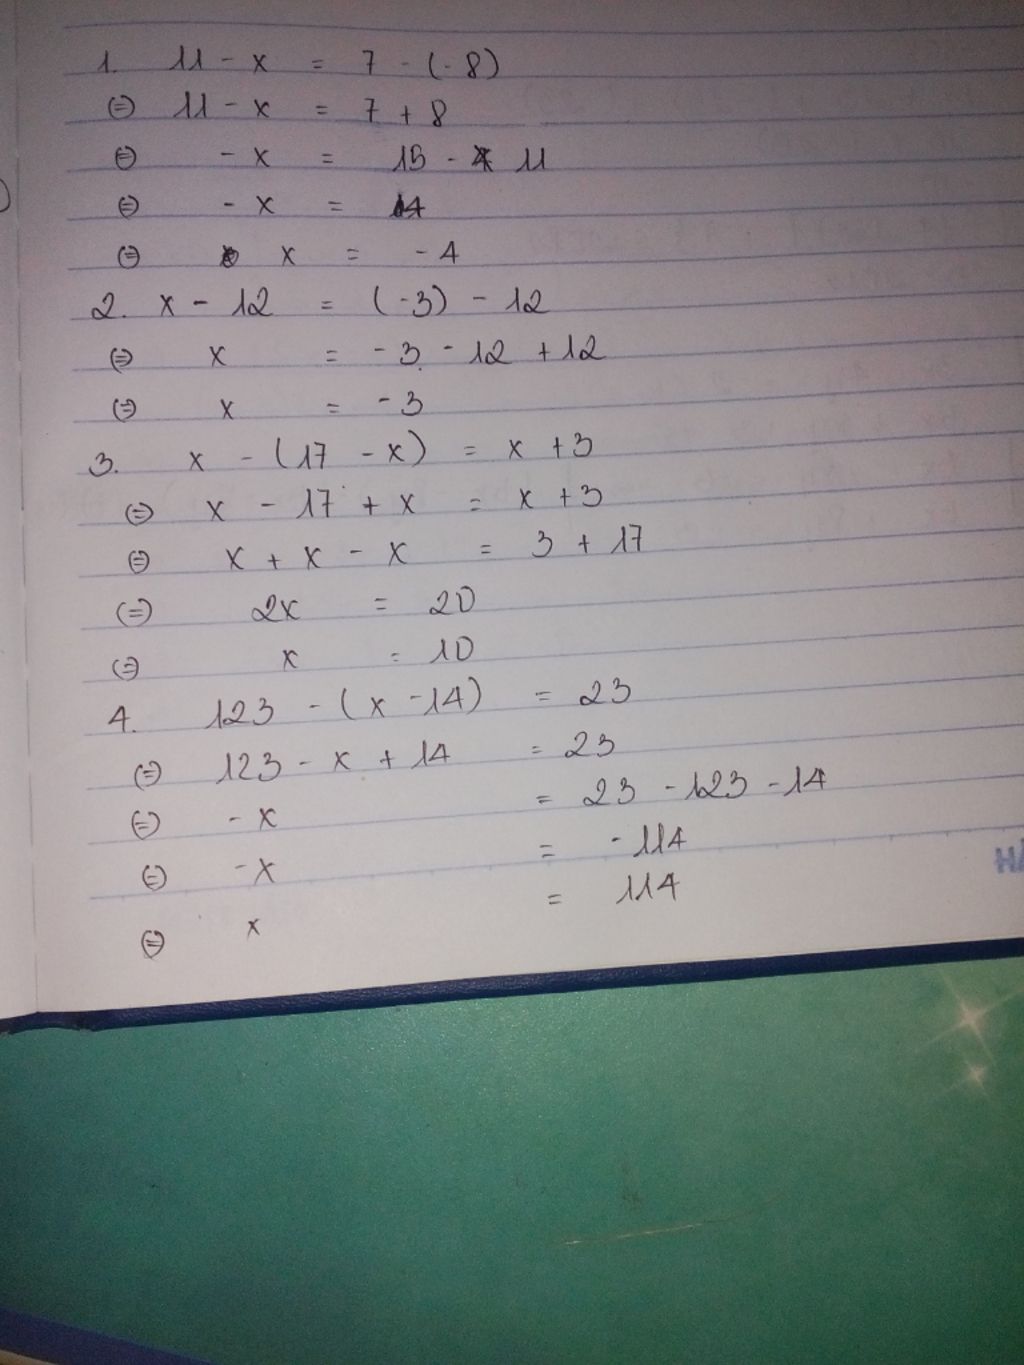 1. 11 - x = 7 - (-8)
⇔ 11 - x = 7 + 8
⇔ - x = 15 - 11
⇔ - x = 4
⇔ x = -4
2. x - 12 = (-3) - 12
⇔ x = -3 - 12 + 12
⇔ x = -3
3. x - (17 - x) = x + 3
⇔ x - 17 + x = x + 3
⇔ x + x - x = 3 + 17
⇔ 2x = 20
⇔ x = 10
4. 123 - (x - 14) = 23
⇔ 123 - x + 14 = 23
⇔ - x = 23 - 123 - 14
⇔ - x = -114
⇔ x = 114